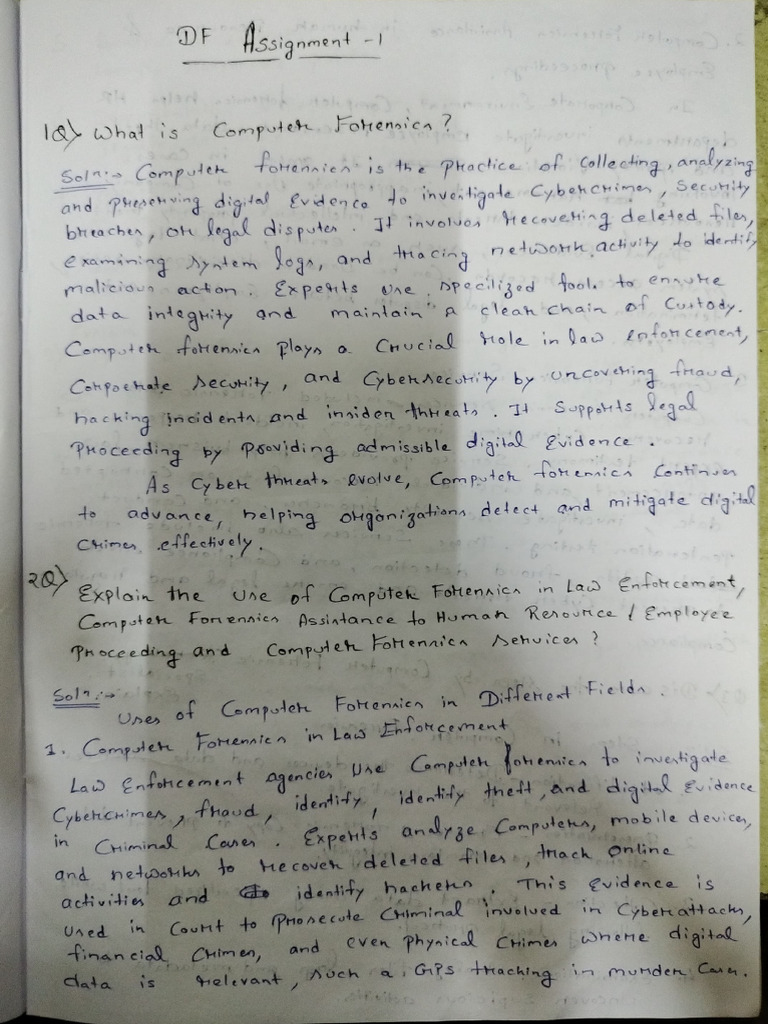 DF Assignment -1
1Q) What is Computer Forensics?
Soln:→ Computer forensics is the practice of collecting, analyzing
and preserving digital Evidence to investigate Cybercrimes, Security
breaches, or legal disputes. It involves recovering deleted files,
examining system logs, and tracing network activity to identify
malicious action. Experts use specilized tools to ensure
data integrity and maintain a clear chain of Custody.
Computer forensics plays a Crucial role in law enforcement,
Corpoerate security, and Cybersecurity by uncovering fraud,
hacking incidents and insider threats. It Supports legal
Proceeding by providing admissible digital Evidence.
As Cyber threats evolve, Computer forensics Continues
to advance, helping organizations detect and mitigate digital
Crimes effectively.
2Q) Explain the use of Computer Forensics in Law Enforcement,
Computer Forensics Assistance to Human Resource / Employee
Proceeding and Computer Forensics services?
Soln:→
Uses of Computer Forensics in Different Fields.
1. Computer Forensics in Law Enforcement
Law Enforcement agencies Use Computer forensics to investigate
Cybercrimes, fraud, identify, identify theft, and digital Evidence
in Criminal Cases. Experts analyze Computers, mobile devices,
and networks to recover deleted files, track online
activities and identify hackers. This Evidence is
used in Court to Prosecute Criminal involved in Cyberattacks,
financial Crimes, and even physical Crimes where digital
data is relevant, such a GPS tracking in murder Cases.